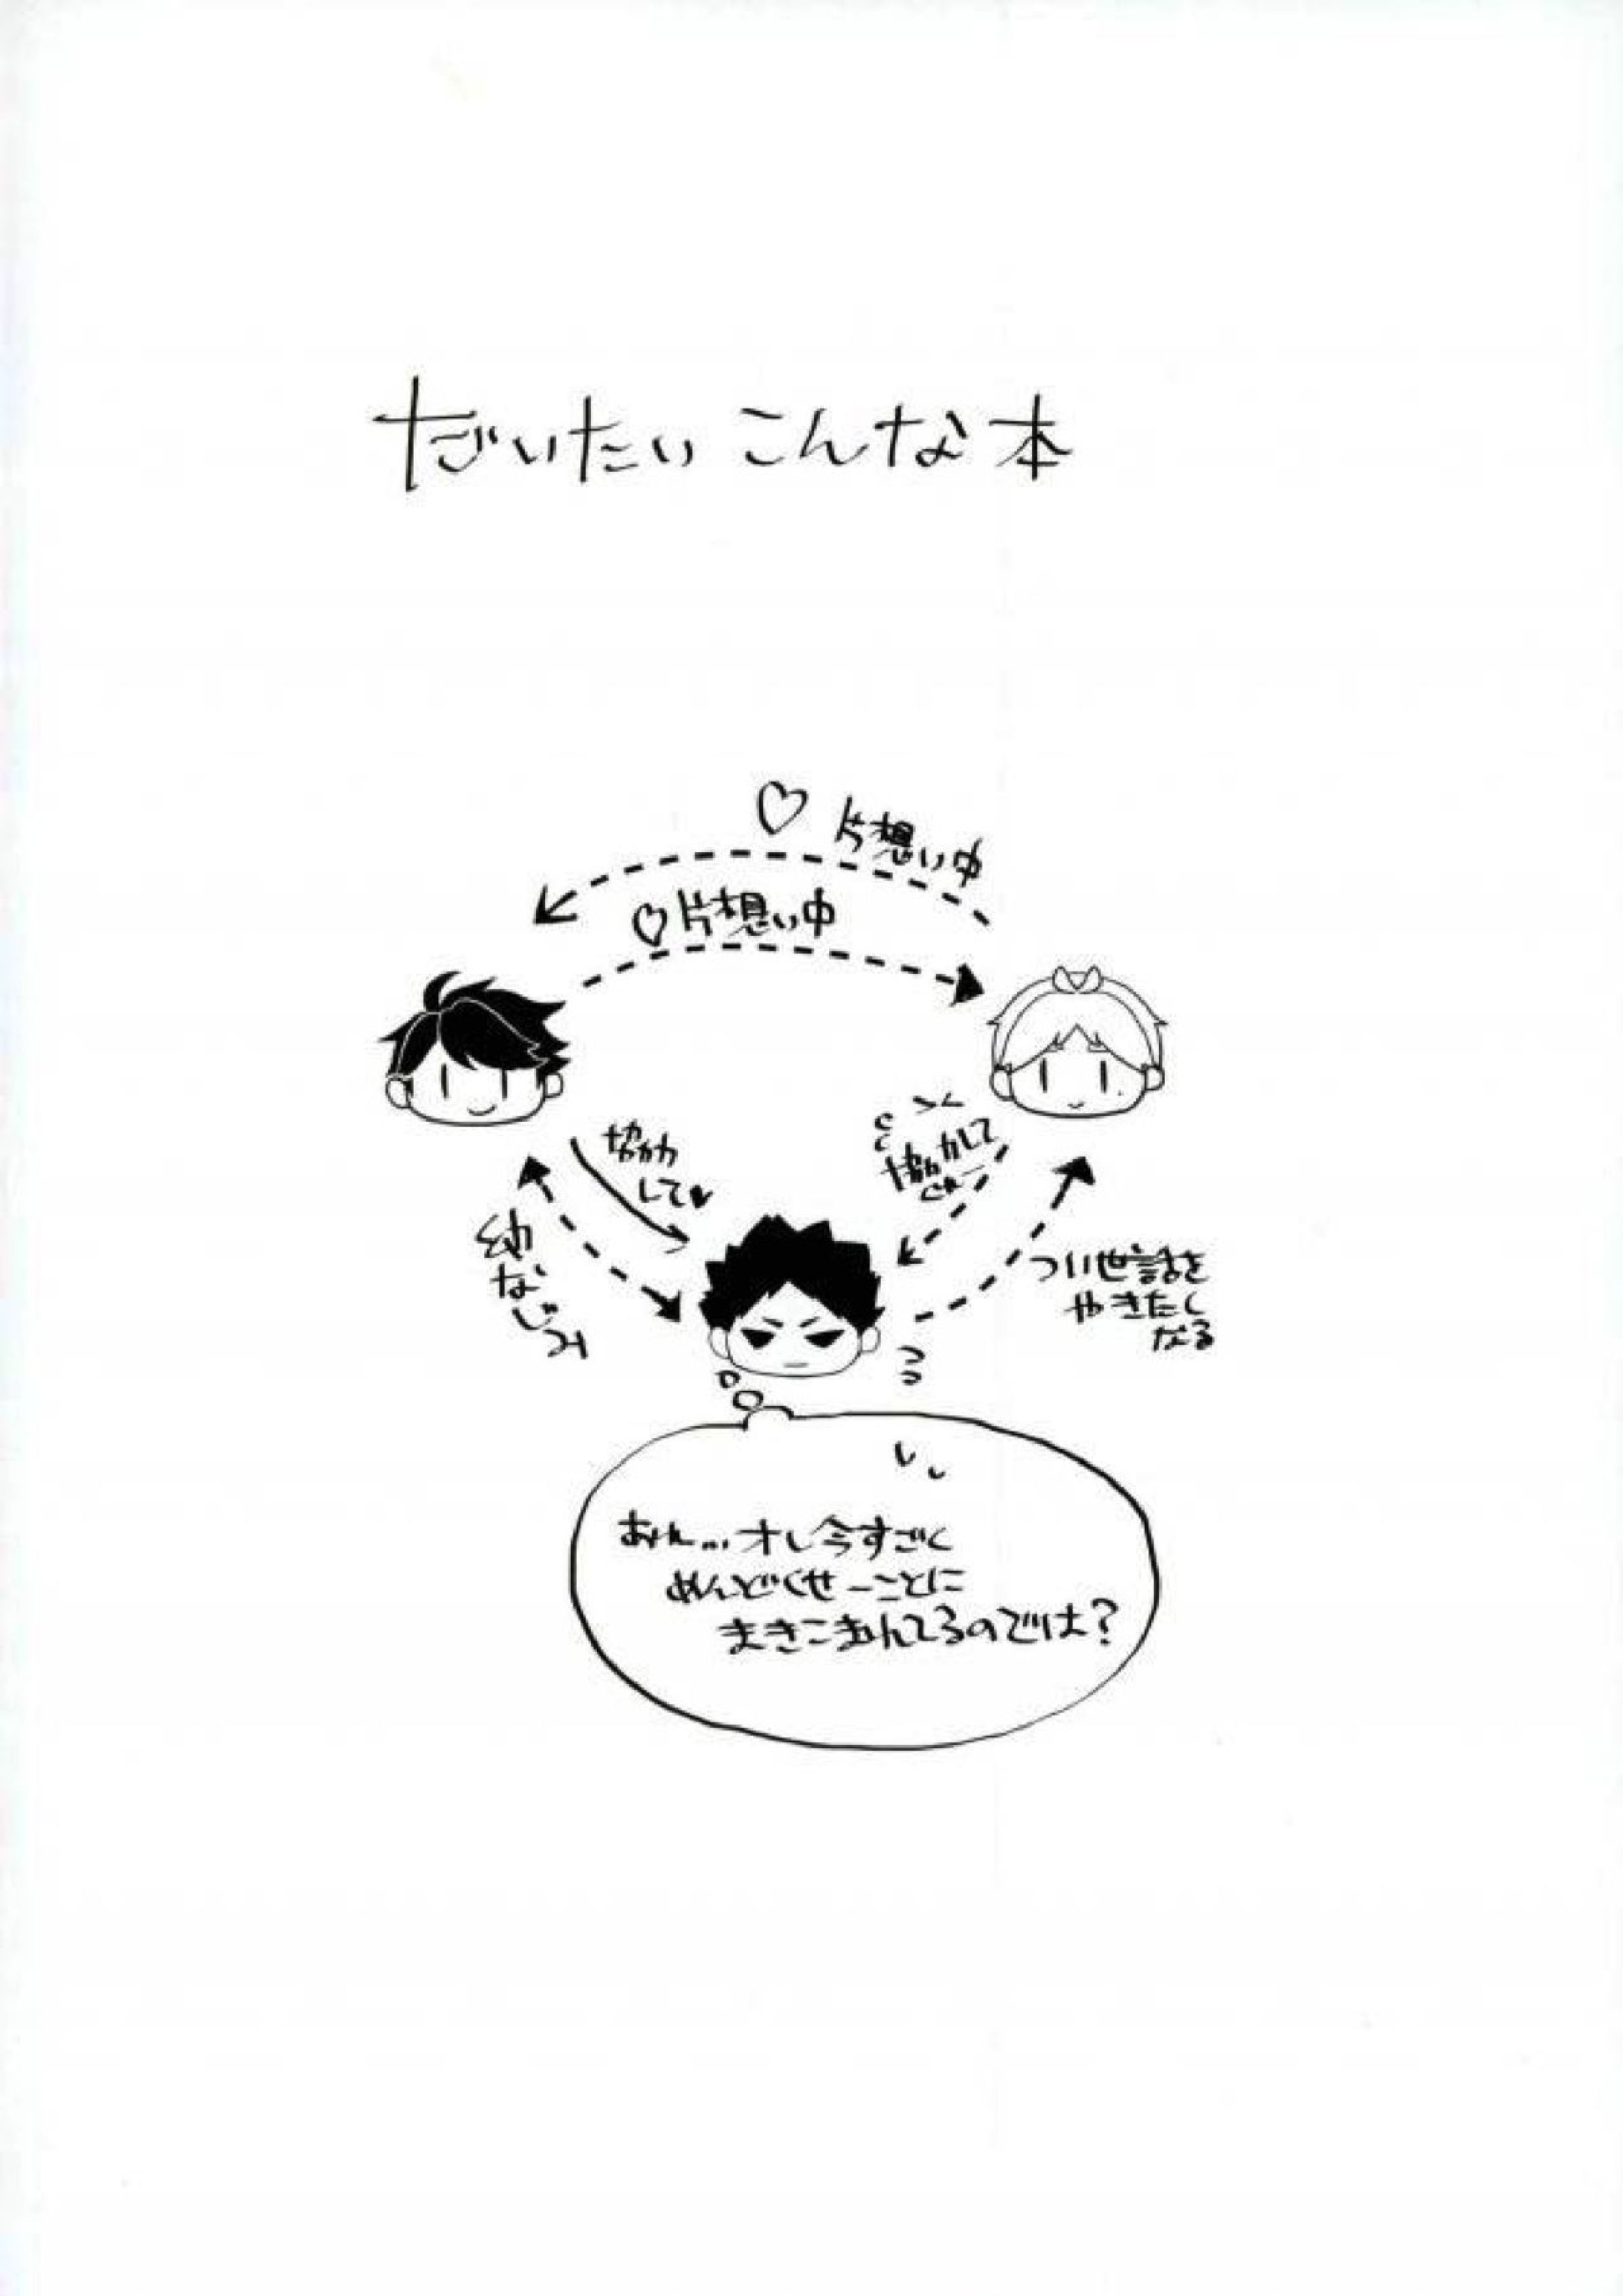 だいたいこんな本
♡ 片想い中
♡片想い中
協力
して♥
協力して
くれー
幼なじみ
つい世話を
やきたく
なる
あれ…オレ今すごく
めんどくせーことに
まきこまれてるのでは?